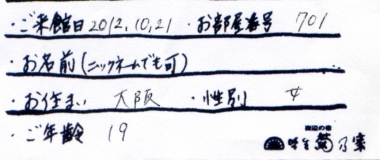 ・ご来館日 2012.10.21 ・お部屋番号 701
・お名前(ニックネームでも可)
・お住まい 大阪 ・性別 女
・ご年齢 19